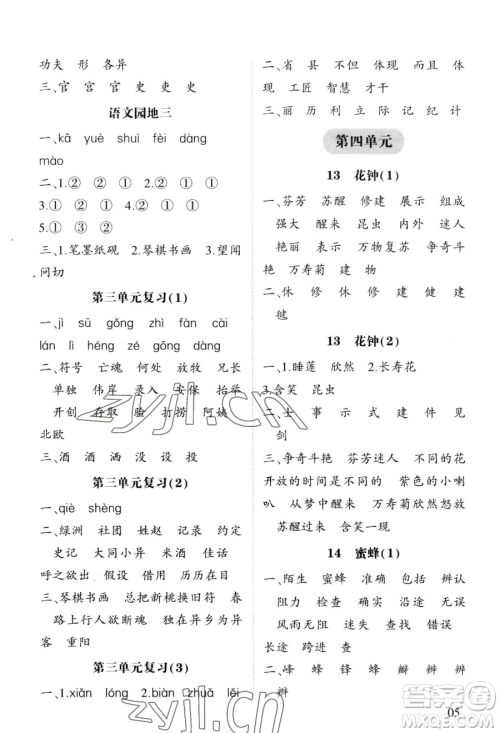 功夫 形 各异
三、官 官 官 吏 吏 吏
语文园地三
一、kā yuè shuì fèi dàng
mào
二、1.② ② ① 2.② ① ①
3.① ② ② 4.② ① ②
5.① ② ①
三、1.笔墨纸砚 2.琴棋书画 3.望闻
问切
第三单元复习(1)
一、jì sū gǒng zhì fàng cài
lán lí héng fú dīng láo
二、符号 亡魂 何处 放牧 兄长
单独 伟岸 录入 安保 抬举
开创 存取 验 打捞 阿姨
北欧
三、酒 酒酒 没没没
第三单元复习(2)
一、qiè shèng
二、绿洲 社团 姓赵 记录 约定
史记 大同小异 米酒 佳话
呼之欲出 假设 借用 历历在目
三、琴棋书画 总把新桃换旧符 春
路上行人欲断魂 独在异乡为异
客 重阳
第三单元复习(3)
一、1.xiǎn lóng 2.biàn zhuǎ lěi
二、省 县 不但 体现 才能 减
轻 工匠 智慧 才干
三、丽 历 利 立 际 记 纪 计
第四单元
13 花钟(1)
一、芬芳 苏醒 修建 展示 组成
强大 醒来 昆虫 内外 迷人
艳丽 示范 万物复苏 争奇斗
艳 万寿菊 建 物
二、休 修 休 修 建 健 健
建
13 花钟(2)
一、1.睡莲 欣然 2.长寿花
3.含笑 昆虫
二、士 事 示 式 建 件 见
剑
三、争奇斗艳 芬芳迷人 不同的花
开放的时间是不同的 紫色的小喇
叭 从梦中醒来 万寿菊 烟草花
苏醒过来 含笑一现
14 蜜蜂(1)
一、陌生 蜜蜂 准确 包括 辨认
阻力 检查 几乎 沿途 无误
风雨无阻 迷失 尽管 错误
长途 跨进 查
二、峰 蜂 锋 蜂 瓣 辨 辨
辩
05
zyjl.cn
zyjl.cn
答案圈